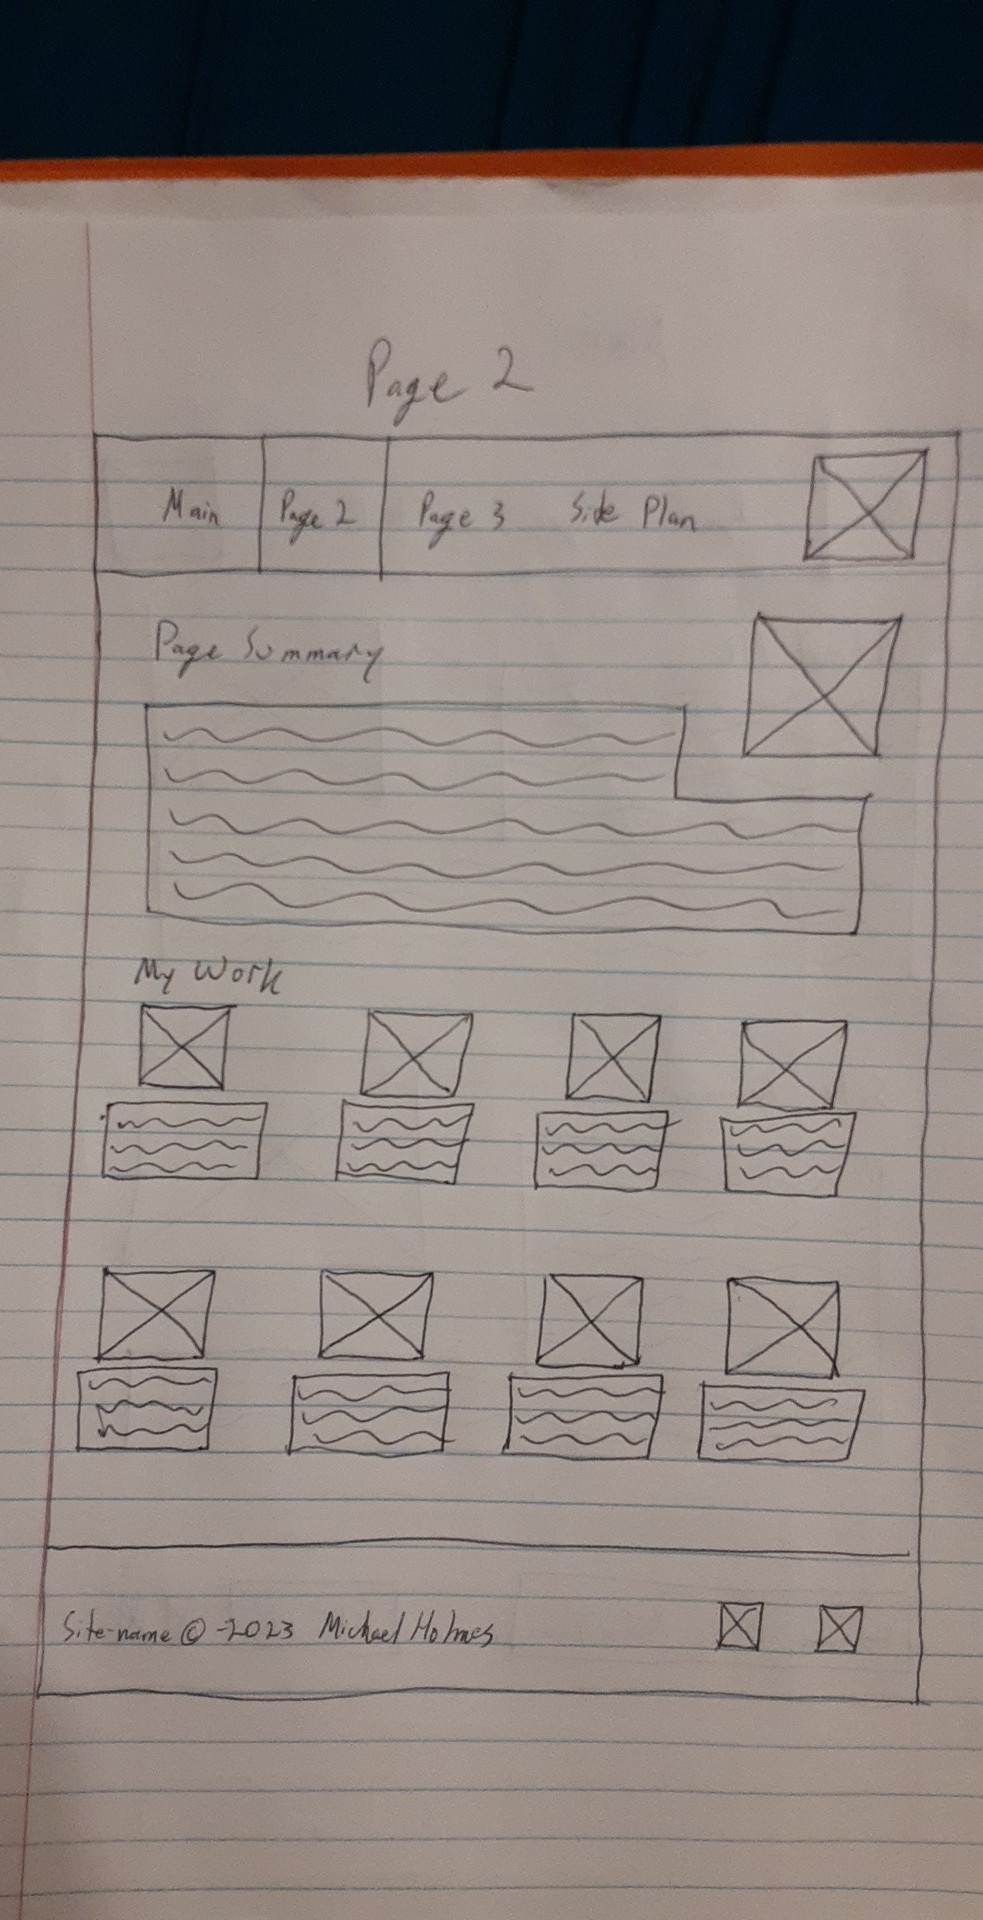 Page 2
Main Page 2 Page 3 Side Plan
Page Summary
My Work
Site-name © -2023 Michael Holmes